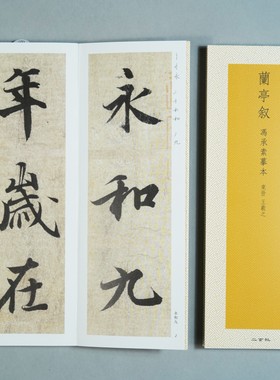 永和九
年歲在
蘭亭叙
馮承素摹本
東晋 王羲之
二玄社